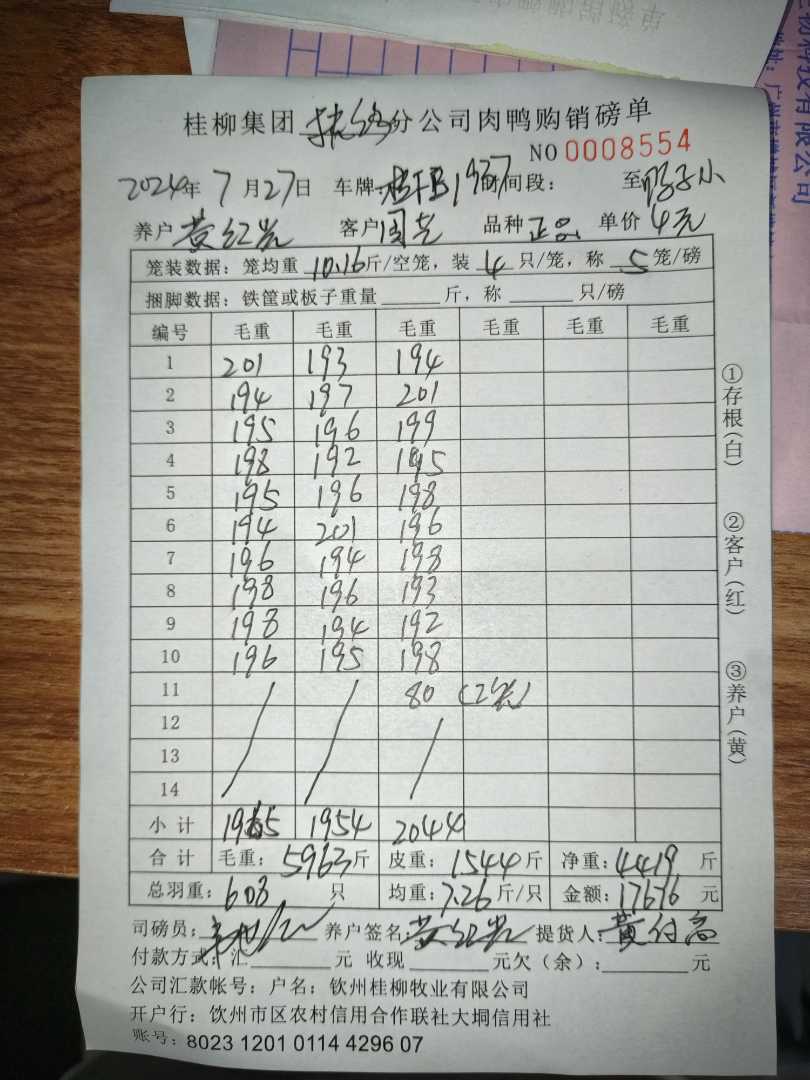 桂柳集团 分公司肉鸭购销磅单
NO 0008554
2024年 7月27日 车牌: 1937 时间段: 至
养户 黄红岩 客户 周芝 品种 正品 单价 4元
笼装数据: 笼均重 10.16斤/空笼, 装 4 只/笼, 称 5 笼/磅
捆脚数据: 铁筐或板子重量 斤, 称 只/磅
编号 毛重 毛重 毛重 毛重 毛重 毛重
1 201 193 194
2 194 197 201
3 195 196 199
4 198 192 195
5 195 196 198
6 194 201 196
7 196 194 198
8 198 196 193
9 198 194 192
10 196 195 198
11 80 (2笼)
12
13
14
小计 1965 1954 2044
合计 毛重: 5963斤 皮重: 1544斤 净重: 4419 斤
总羽重: 608 只 均重: 7.26斤/只 金额: 17676 元
司磅员: 养户签名 黄红岩 提货人: 黄付高
付款方式: 汇 元 收现 元欠(余): 元
公司汇款帐号: 户名: 钦州桂柳牧业有限公司
开户行: 饮州市区农村信用合作联社大垌信用社
账号: 8023 1201 0114 4296 07
①存根(白)
②客户(红)
③养户(黄)